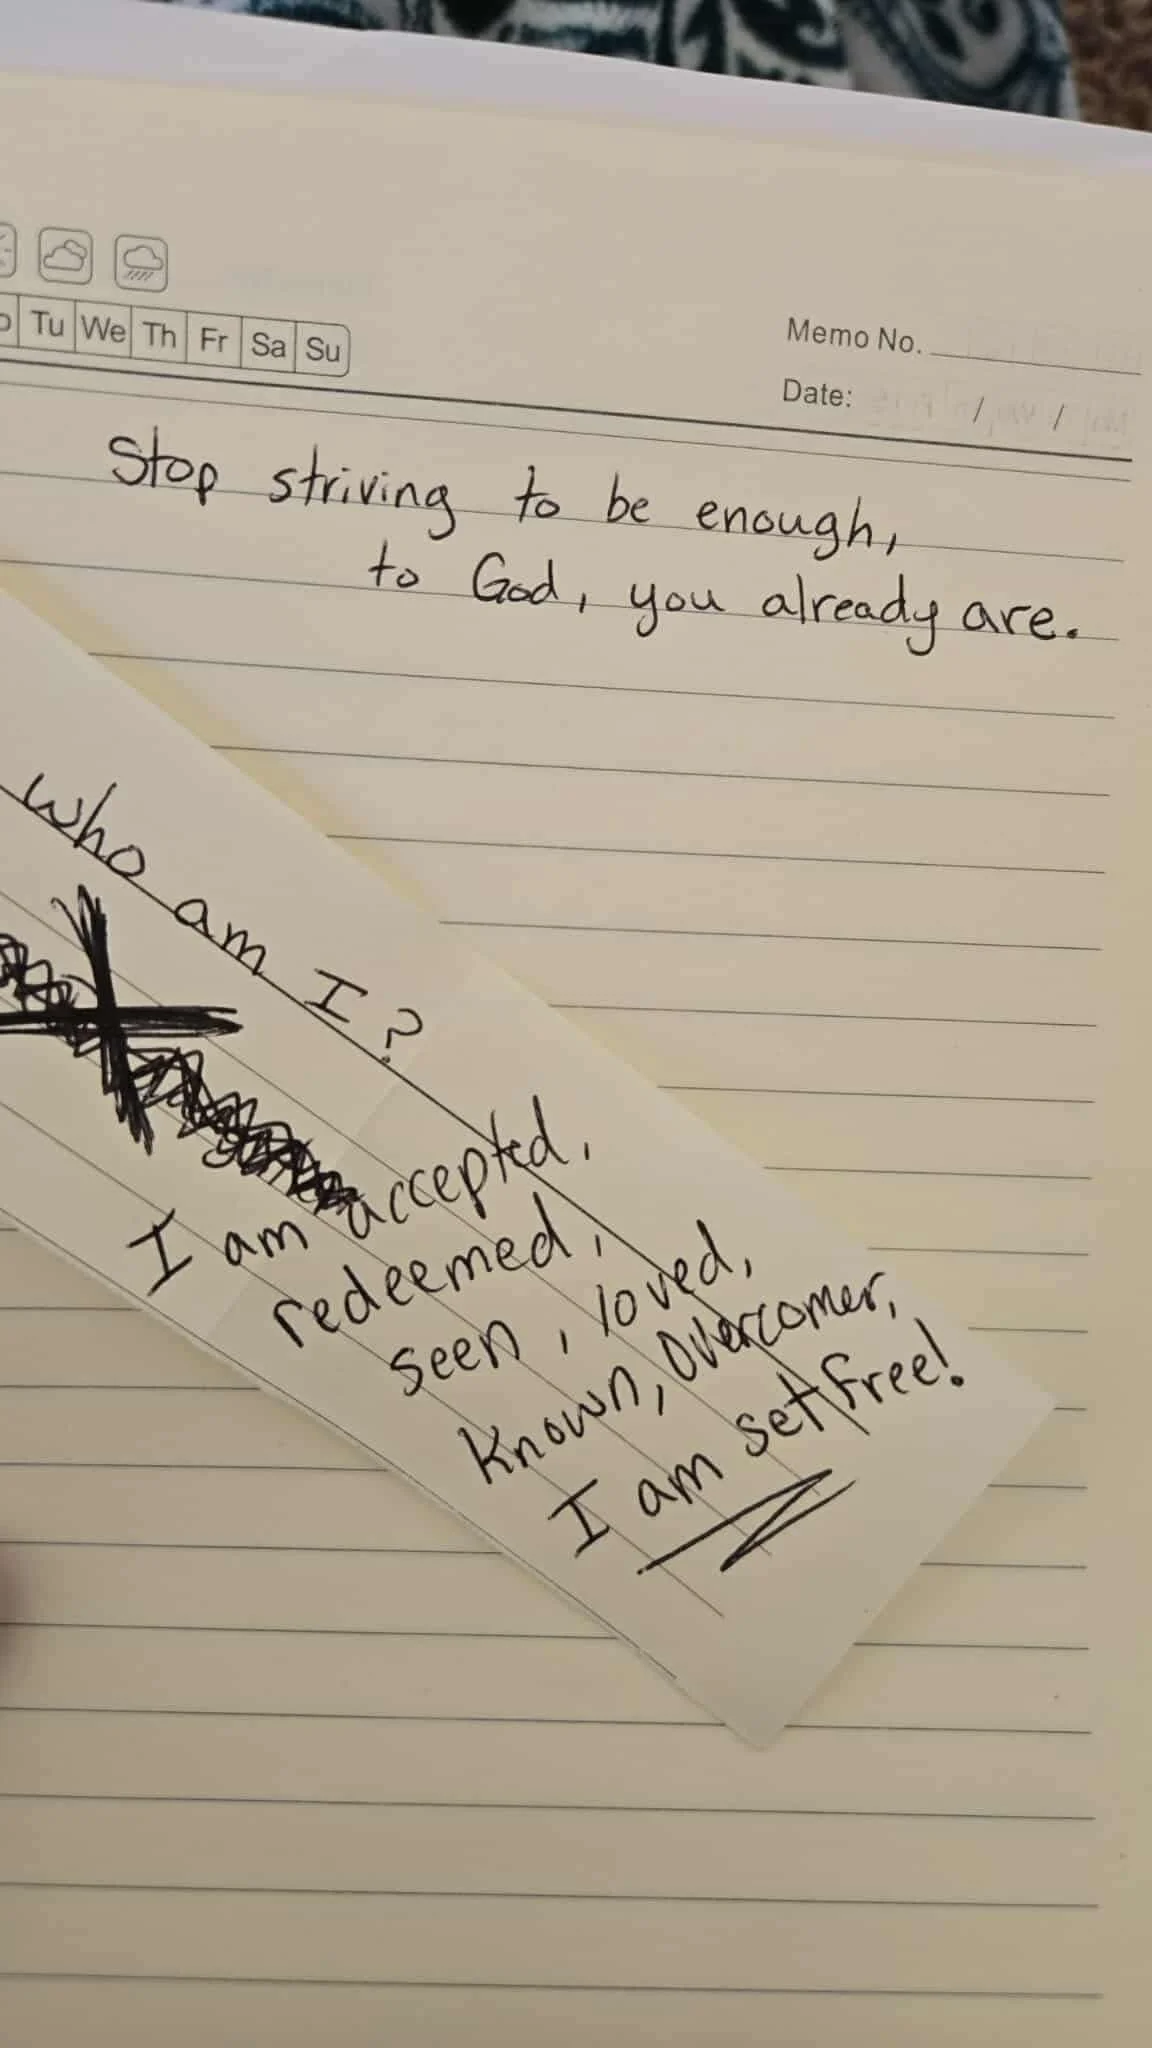 Tu We Th Fr Sa Su
Memo No.
Date: / /
Stop striving to be enough,
to God, you already are.
Who am I?
I am accepted,
redeemed,
seen, loved,
Known, Overcomer,
I am set free!